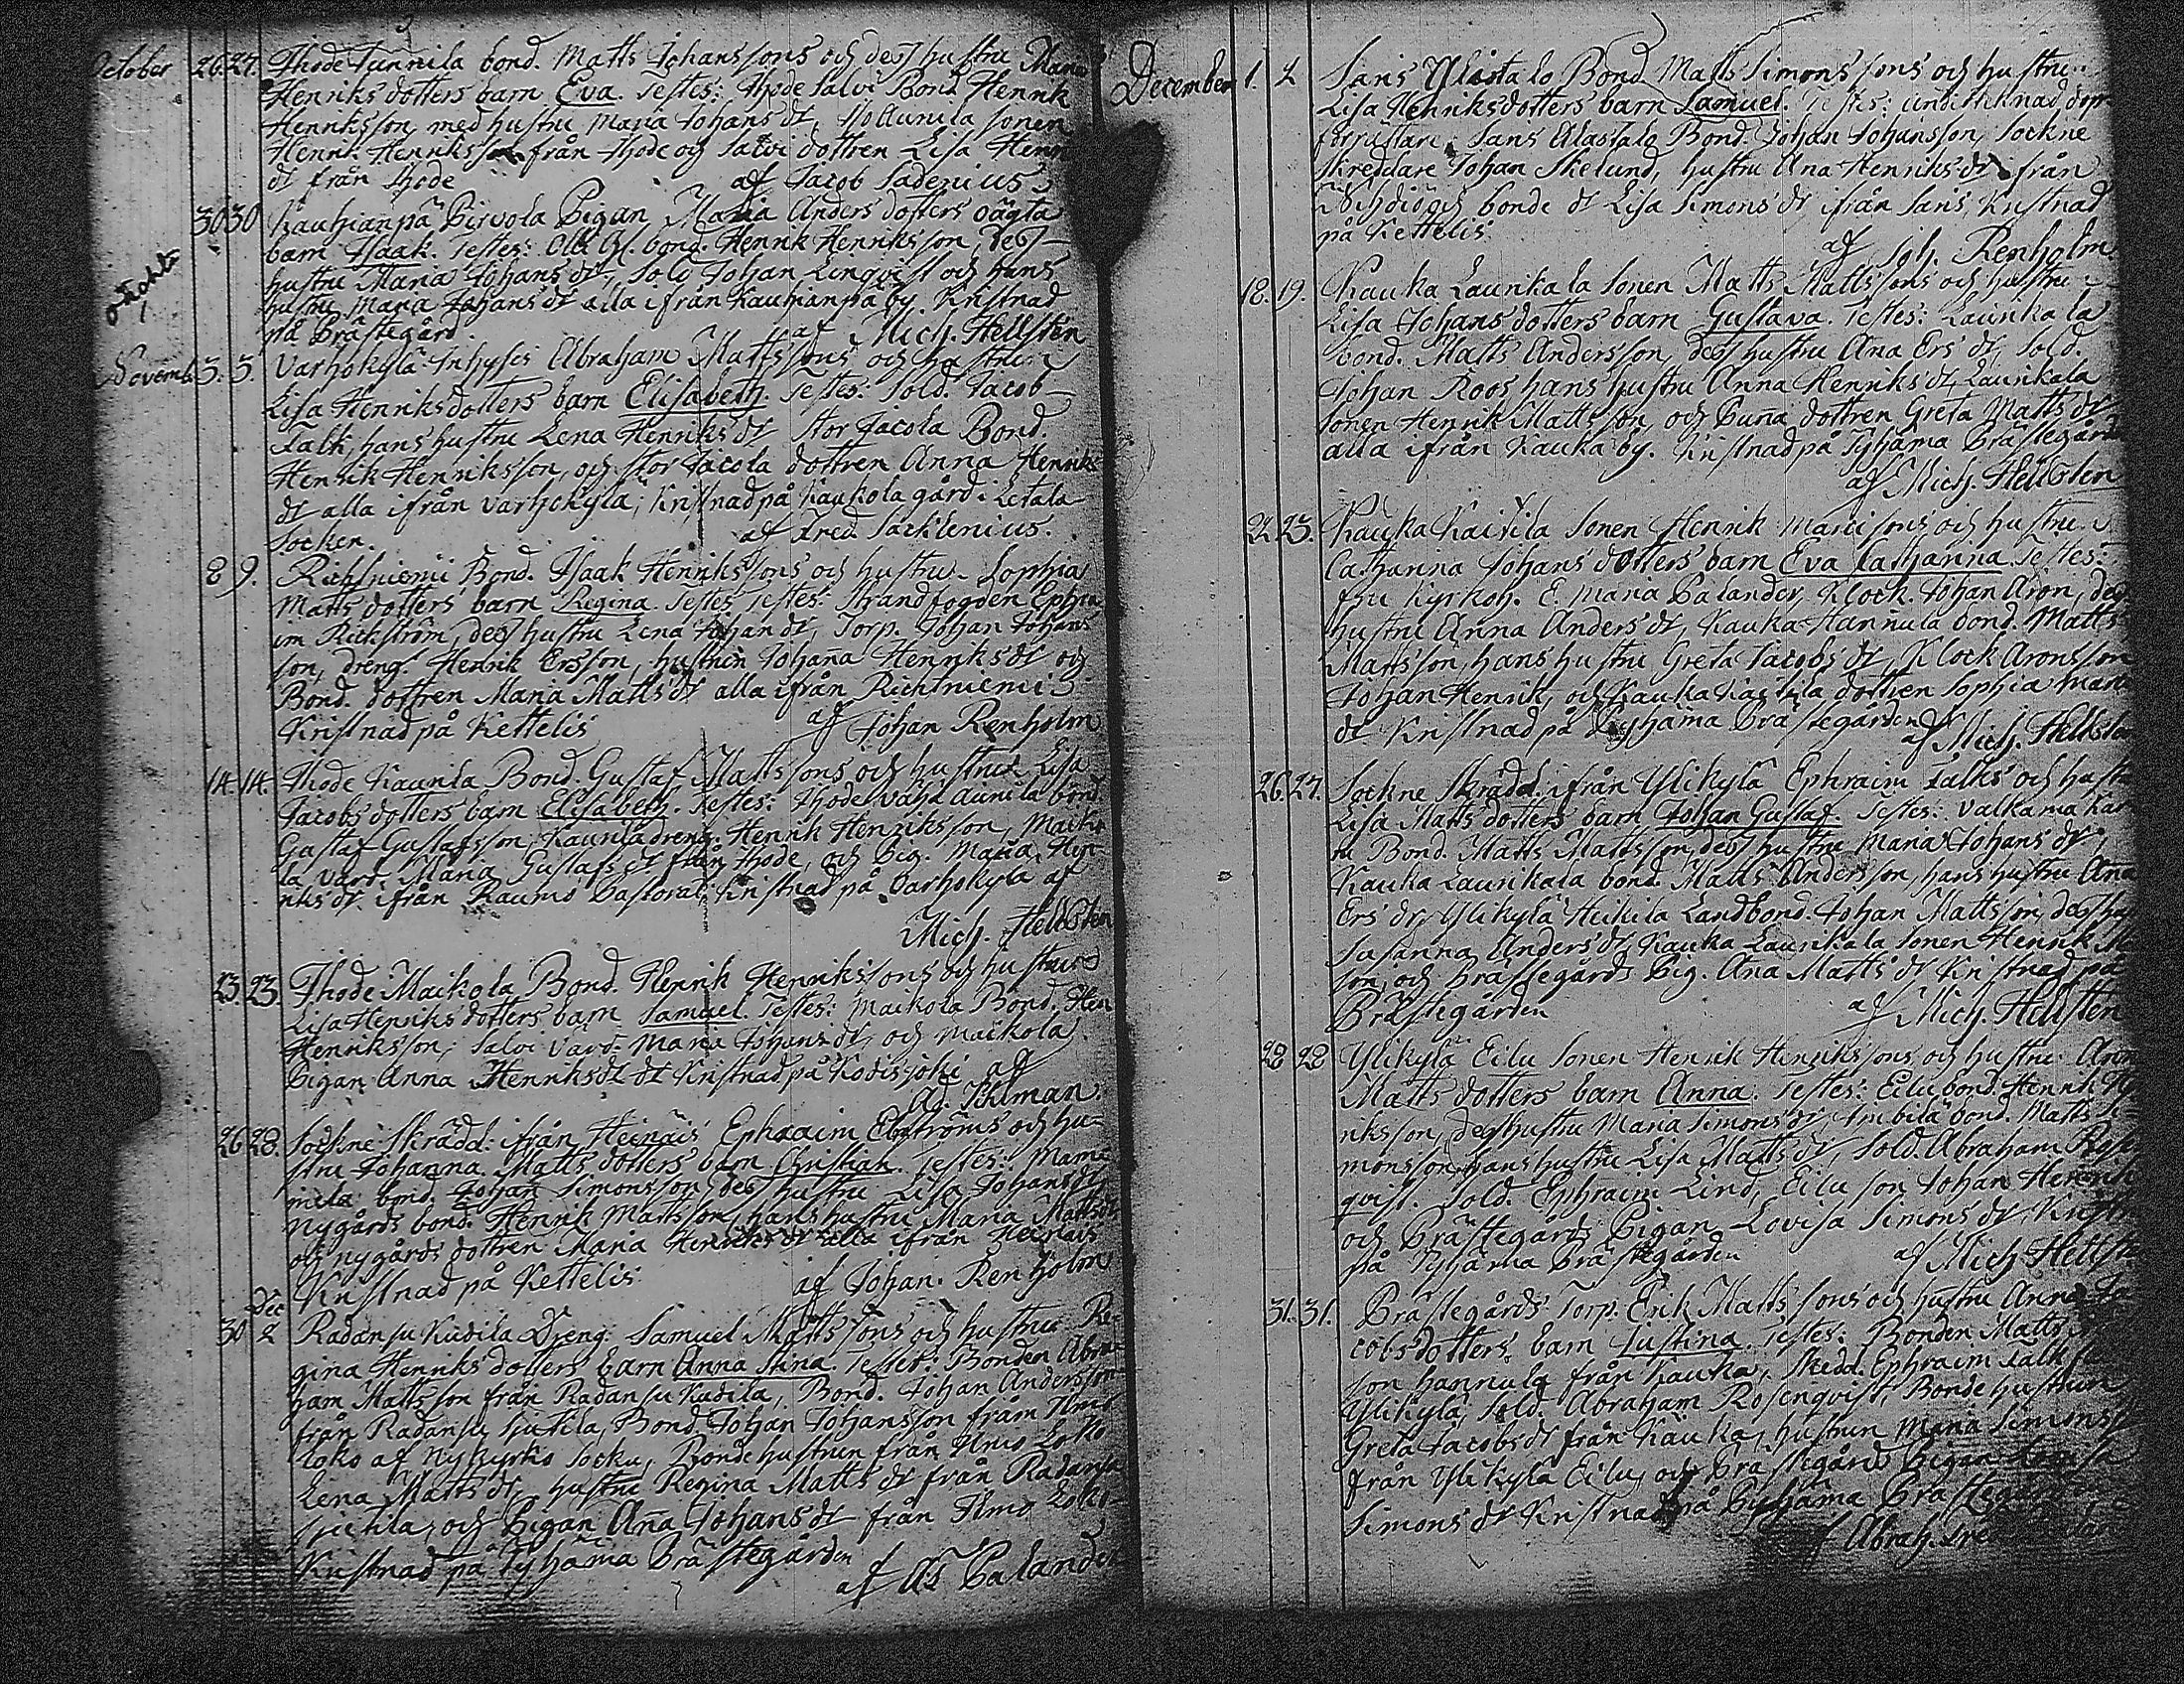 October 26. 27. Ihode Tunnila bond. Matts Johanssons och dess hustru Maria
Henriks dotters barn Eva. Testes: Ihode Salvi Bond Henrik
Henriksson, med hustru Maria Johans dr, sonen
Henrik Henriksson från Ihode och Salvi dottren Lisa Henr
dr från Ihode af Jacob Sadenius
30 30 Kauhianpä Pirvola Pigan Maria Anders dotters oägta
barn Isaak. Testes: bond. Henrik Henriksson, dess
hustru Maria Johans dr, Sold Johan Linqvist och hans
oächta
hustru Maria Johans dr alla ifrån Kauhianpä by. Kristnad
på Prästegård. af Mich. Hellsten
Novemb. 3. 3. Varhokylä Inhyses Abraham Mattssons och hustrus
Lisa Henriksdotters barn Elisabeth. Testes: Sold. Jacob
Falk, hans hustru Lena Henriks dr Stor Jacola Bond.
Henrik Henriksson, och Stor Jacola dottren Anna Henriks
dr alla ifrån Varhokyla; Kristnad på Kaukola gård i Letala
Socken. af Fred. Sacklenius.
8 9. Richtniemi Bond. Isaak Henrikssons och hustru Sophia
Matts dotters barn Regina. Testes testes: Strandfogden Ephra
im Rickström, dess hustru Lena Johan dr, Torp. Johan Johans
son, dreng Henrik Ersson, hustrun Johanna Henriks dr och
Bond. dottren Maria Matts dr alla ifrån Richtniemi
Kristnad på Kettelis af Johan Renholm
14. 14. Ihode Kaunila Bond. Gustaf Mattssons och hustrus Lisa
Jacobs dotters barn Elisabeth. Testes: Ihode vähä aunila bond.
Gustaf Gustafsson, Kaunila dreng Henrik Henriksson, Maiko
la värd. Maria Gustafs dr från Ihode, och Pig. Maria Hen
riks dr ifrån Raumo Pastorat, Kristnad på Varhokyla af
Mich. Hellsten
23. 23. Ihode Maikola Bond. Henrik Henrikssons och hustrus
Lisa Henriks dotters barn Samuel. Testes: Maikola Bond. Hen
Henriksson, Salvi värd. Maria Johans dr, och Maikola
Pigan Anna Henriks dr dr Kristnad på Kodisjoki af
Ad. Ihlman.
26 28. Sockne Skrädd. ifrån Heinäis Ephraim Ekströms och hu-
stru Johanna Matts dotters barn Christian. Testes: Mame
mila bond. Johan Simonsson, dess hustru Lisa Johans dr
Nygårds bond. Henrik Mattsson, hans hustru Maria Matts dr
och nygårds dottren Maria Henriks dr alla ifrån Heinäis
Kristnad på Kettelis af Johan. Renholm
Dec
30 2 Radansu Kudila Dreng Samuel Mattssons och hustru Re-
gina Henriks dotters barn Anna Stina. Testes: Bonden Abra-
ham Mattsson från Radansu Kudila, Bond. Johan Andersson
från Radansu Sjutila, Bond Johan Johansson från Ilmo
Loko af Nykyrko Socku, Bondehustrun från Ilmo Loko
Lena Matts dr, hustru Regina Matts dr från Radansu
och Pigan Anna Johans dr från Ilmo Loko
Kristnad på Pyhäma Prästegården af Palander
December 1. 2 Sans Ylistalo Bond Matts Simonssons och hustru
Lisa Henriksdotters barn Samuel. Testes: undertecknad dop
förrättare, Sans Alastalo Bond. Johan Johansson, Sockne
Skreddare Johan Skelund, hustru Ana Henriks dr ifrån
och bonde dr Lisa Simons dr ifrån Sans, Kristnad
på Kettelis af Joh. Renholm
18. 19. Kauka Laurikala Sonen Matts Mattssons och hustru
Lisa Johans dotters barn Gustava. Testes: Laurikala
bond. Matts Andersson, dess hustru Ana Ers dr, Sold.
Johan Roos, hans hustru Anna Henriks dr, Laurikala
Sonen Henrik Mattsson, och Puna dottren Greta Matts dr
alla ifrån Kauka by. Kristnad på Pyhäma Prästegården
af Mich. Hellsten
22 23. Kauka Kaivila Sonen Henrik Marcissons och hustru
Catharina Johans dotters barn Eva Catharina Testes:
fru Kyrkoh. E. Maria Palander, Klock. Johan Aron, dess
hustru Anna Anders dr, Kauka Hannula bond. Matts
Mattsson, hans hustru Greta Jacobs dr, Klock Aronsson
Johan Henrik, och Kauka dottren Sophia
dr Kristnad på Pyhäma Prästegården af Mich. Hellsten
26. 27. Sockne Skrädd. ifrån Ylikylä Ephraim Falks och hust
Lisa Matts dotters barn Johan Gustaf. Testes: Valkama
Bond. Matts Mattsson, dess hustru Maria Johans dr,
Kauka Laurikala bond. Matts Andersson, hans hustru Ana
Ers dr, Ylikylä Heikila Landbond. Johan Mattsson, dess hu
Susanna Anders dr, Kauka Laurikala Sonen Henrik
son, och Prästegårds Pig. Ana Matts dr Kristnad på
Prästegården af Mich. Hellsten
28 28 Ylikylä Eilu Sonen Henrik Henrikssons och hustru Ann
Matts dotters barn Anna. Testes: Eilu bond. Henrik He
nriksson, dess hustru Maria Simons dr, bond. Matts Si-
monsson, hans hustru Lisa Matts dr, Sold. Abraham
qvist. Sold. Ephraim Lind, Eilu son Johan Henrik
och Prästegårds Pigan Lovisa Simons dr, Kristn
på Pyhäma Prästegården af Mich Hellsten
31. 31. Prästegårds Torp. Erik Mattssons och hustru Anna Ja
cobs dotters barn Justina. Testes: Bonden Matts
son Hannula från Kauka, Skrdd. Ephraim Falk
Ylikylä, Sold. Abraham Rosenqvist, Bondehustrun
Greta Jacobs dr från Kauka, hustrun Maria Simons
från Ylikylä Eilu, och Prästegårds Pigan Lovisa
Simons dr Kristnad på Pyhäma Prästegården
af Abrah.